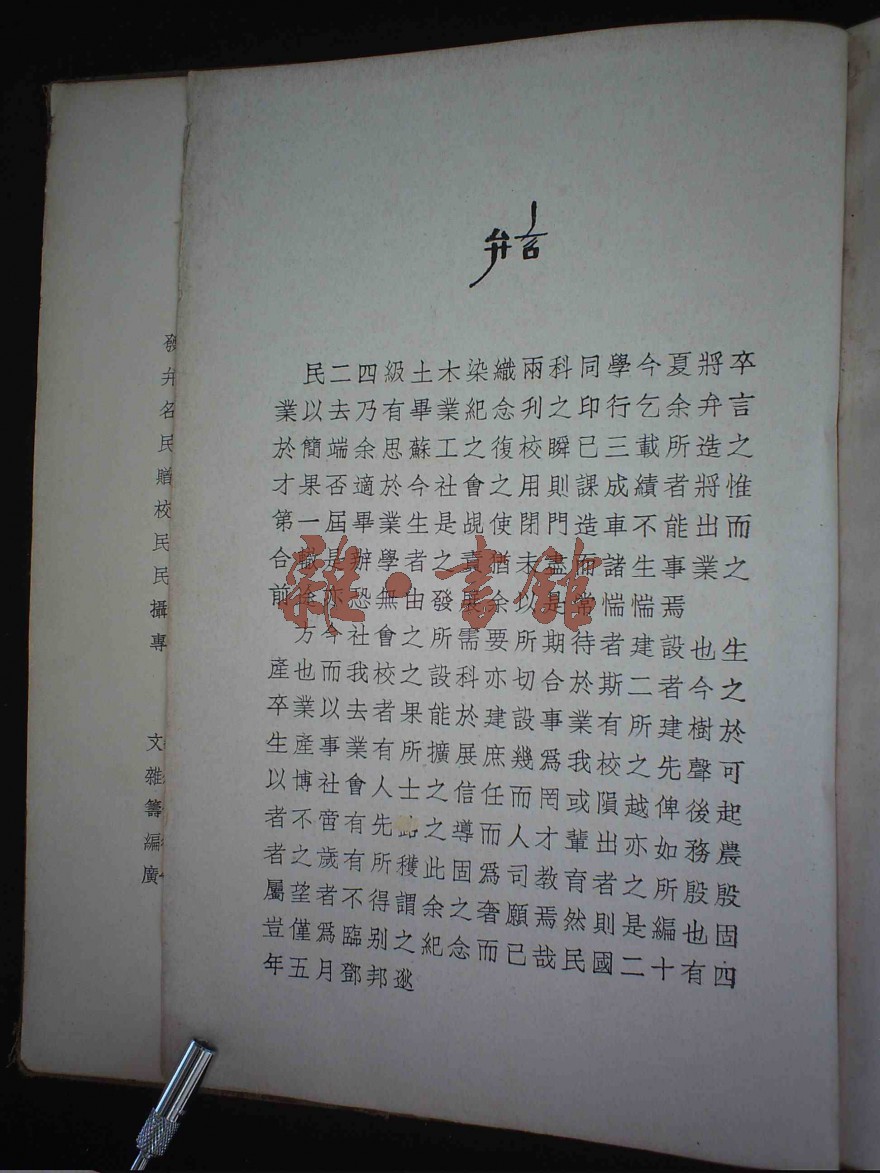 弁言
民二四級土木染織兩科同學今夏將卒
業以去乃有畢業紀念刋之印行乞余弁言
於簡端余思蘇工之復校瞬已三載所造之
才果否適於今社會之用則課成績者將惟
第一屆畢業生是覘使閉門造車不能出而
合轍是辦學者之責猶未盡而諸生事業之
前途亦恐無由發展余以是常惴惴焉
方今社會之所需要所期待者建設也生
產也而我校之設科亦切合於斯二者今之
卒業以去者果能於建設事業有所建樹於
生產事業有所擴展庶幾爲我校之先聲可
以博社會人士之信任而罔或隕越俾後起
者不啻有先路之導而人才輩出亦如務農
者之歲有所穫此固爲司教育者之所殷殷
屬望者不得謂余之奢願焉然則是編也固
豈僅爲臨别之紀念而已哉民國二十有四
年五月鄧邦逖
雜·書館
發弁名民贈校民民攝專
文雜籌編廣